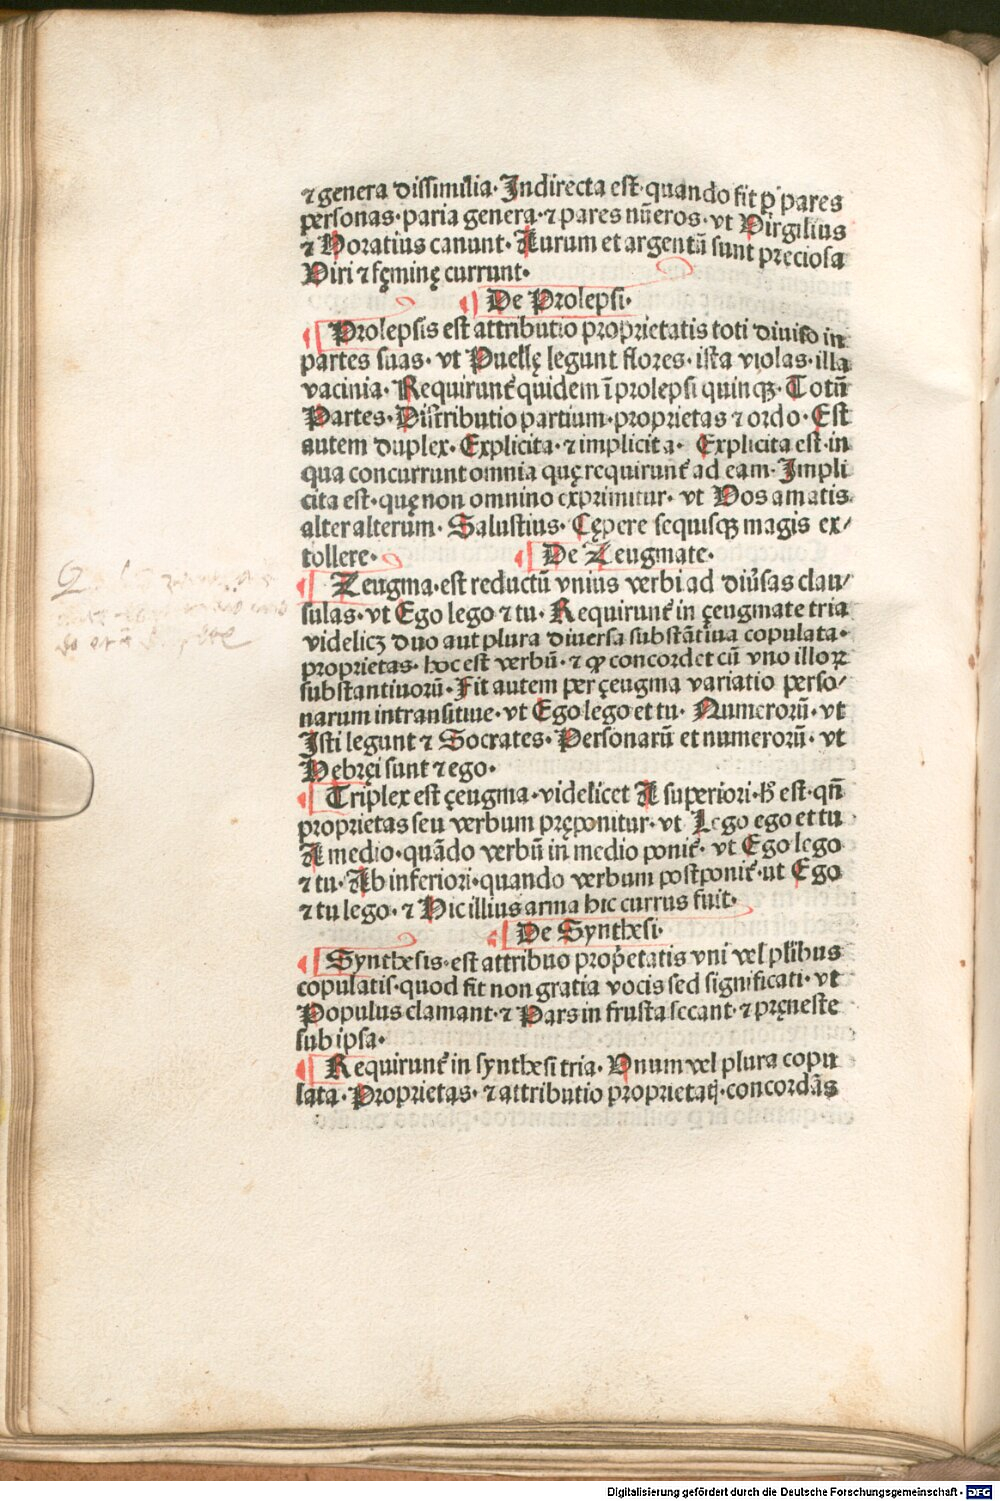 ⁊ genera dissimilia· Indirecta est· quando fit ꝑ pares
personas· paria genera· ⁊ pares nūeros· vt Virgilius
⁊ Horatius canunt· Aurum et argentū sunt preciosa
Viri ⁊ fęminę currunt·
De Prolepsi·
Prolepsis est attributio proprietatis toti diuiso in
partes suas· vt Puellę legunt flores· ista violas· illa
vacinia· Requirunt̄ quidem ī prolepsi quinqꝫ· Totū
Partes· Distributio partium· proprietas ⁊ ordo· Est
autem duplex· Explicita· ⁊ implicita· Explicita est· in
qua concurrunt omnia quę requirunt̄ ad eam· Impli
cita est· quę non omnino exprimitur· vt Vos amatis
alter alterum· Salustius· Cępere se quisqꝫ magis ex/
tollere· De Zeugmate·
Zeugma· est reductū vnius verbi ad diũsas clau/
sulas· vt Ego lego ⁊ tu· Requirunt̄ in çeugmate tria
videlicꝫ duo aut plura diuersa substātiua copulata·
proprietas· hoc est verbū· ⁊ ꝙ concordet cū vno illoꝝ
substantiuorū· Fit autem per çeugma variatio perso/
narum intransitiue· vt Ego lego et tu· Numerorū· vt
Isti legunt ⁊ Socrates· Personarū et numerorū· vt
Hebręi sunt ⁊ ego·
Triplex est çeugma· videlicet A superiori· h̄ est· qn̄
proprietas seu verbum pręponitur· vt Lego ego et tu
A medio· quādo verbū in medio ponit̄· vt Ego lego
⁊ tu· Ab inferiori· quando verbum postponit̄· ut Ego
⁊ tu lego· ⁊ Hic illius arma hic currus fuit·
De Synthesi·
Synthesis· est attribuo prop̄etatis vni vel pl̄ibus
copulatis· quod fit non gratia vocis sed significati· vt
Populus clamant· ⁊ Pars in frusta secant· ⁊ pręneste
sub ipsa·
Requirunt̄ in synthesi tria· Vnum vel plura copu
lata· Proprietas· ⁊ attributio proprietatꝭ· concordās
Digitalisierung gefördert durch die Deutsche Forschungsgemeinschaft - DFG